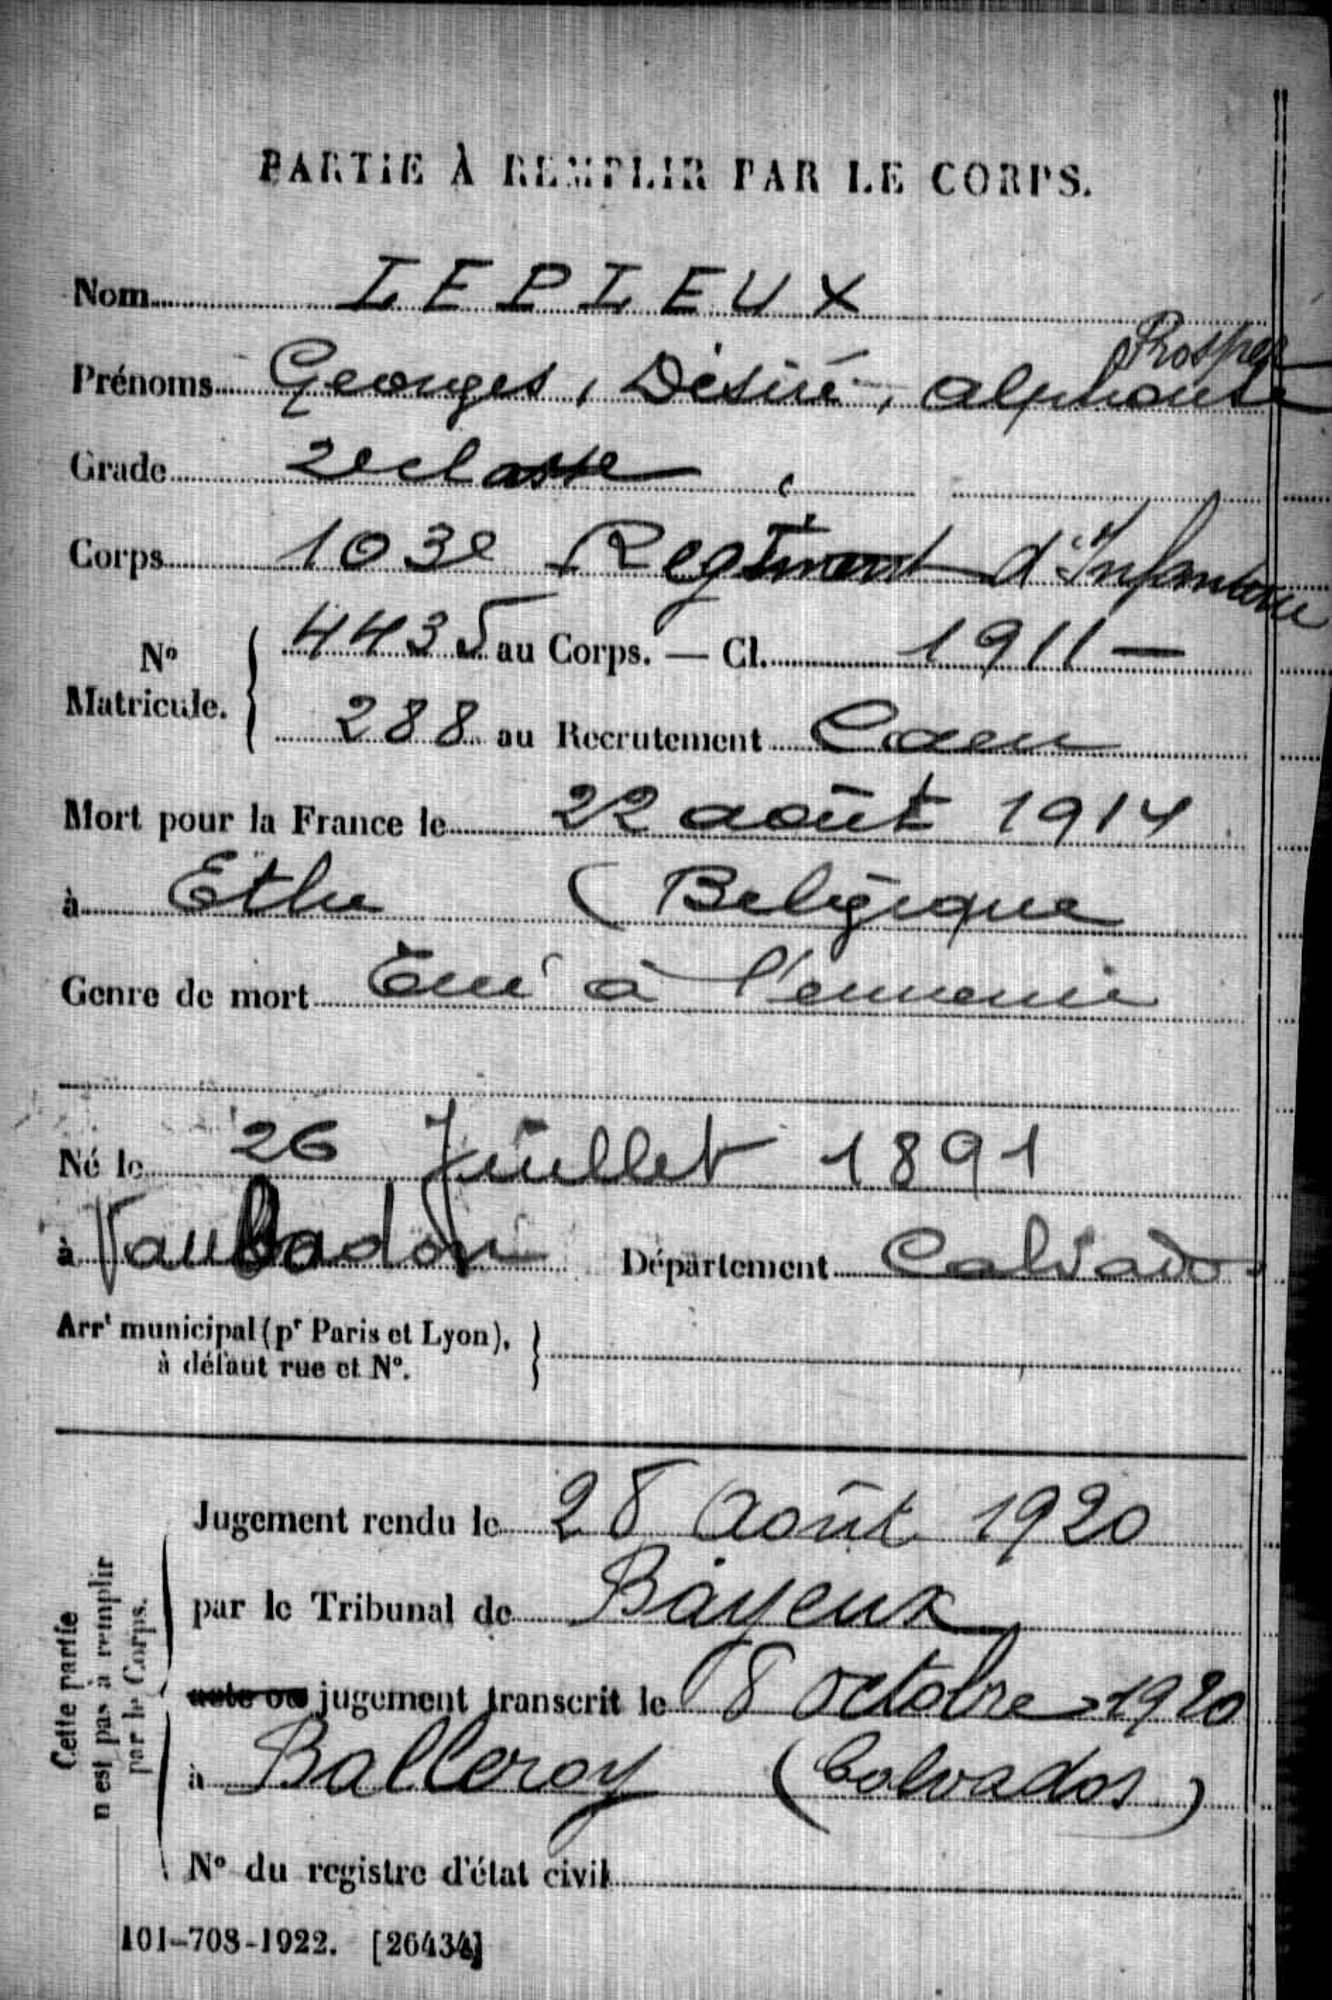 PARTIE À REMPLIR PAR LE CORPS.
Nom LEPLEUX
Prosper
Prénoms Georges, Désiré, Alphonse
Grade 2e classe
Corps 103e Regiment d'Infanterie
N° Matricule. 4435 au Corps. — Cl. 1911 —
288 au Recrutement Caen
Mort pour la France le 22 août 1914
à Ethe (Belgique
Genre de mort Tué à l'ennemi
Né le 26 Juillet 1891
à Vaubadon Département Calvados
Arrt municipal (pr Paris et Lyon),
à défaut rue et N°.
Cette partie
n'est pas à remplir
par le Corps.
Jugement rendu le 28 Août 1920
par le Tribunal de Bayeux
acte ou jugement transcrit le 8 octobre 1920
à Balleroy (Calvados)
N° du registre d'état civil
101-708-1922. [26434]